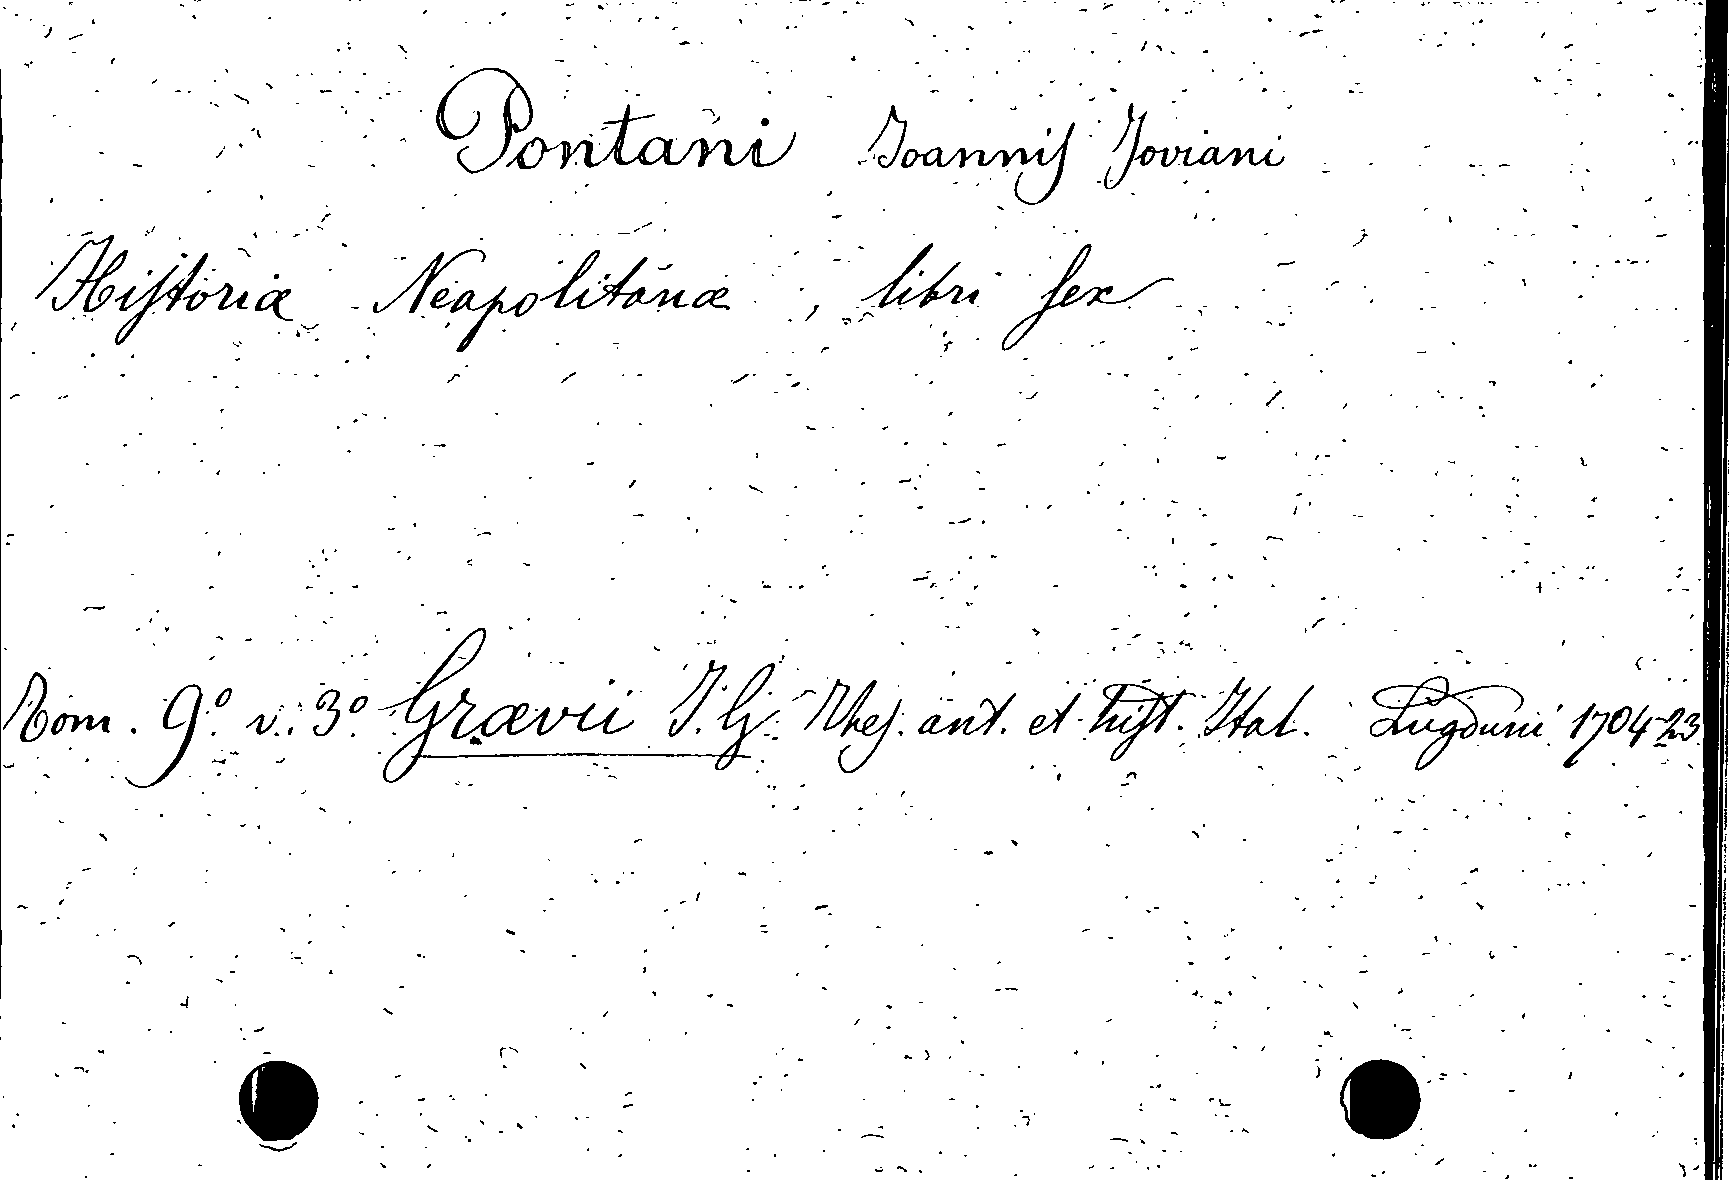 Pontani Joannis Joviani
Historiæ Neapolitanæ, libri sex
Tom. 9º v. 3º Grævii J. G. Thes. ant. et hist. Ital. Lugduni 1704-23